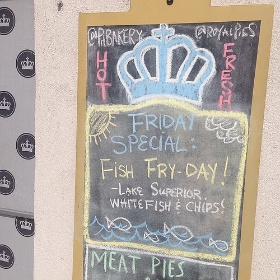 @PHBAKERY @ROYALPIES
HOT
FRESH
FRIDAY
SPECIAL:
FISH FRY-DAY!
-LAKE SUPERIOR
WHITEFISH & CHIPS!
MEAT PIES